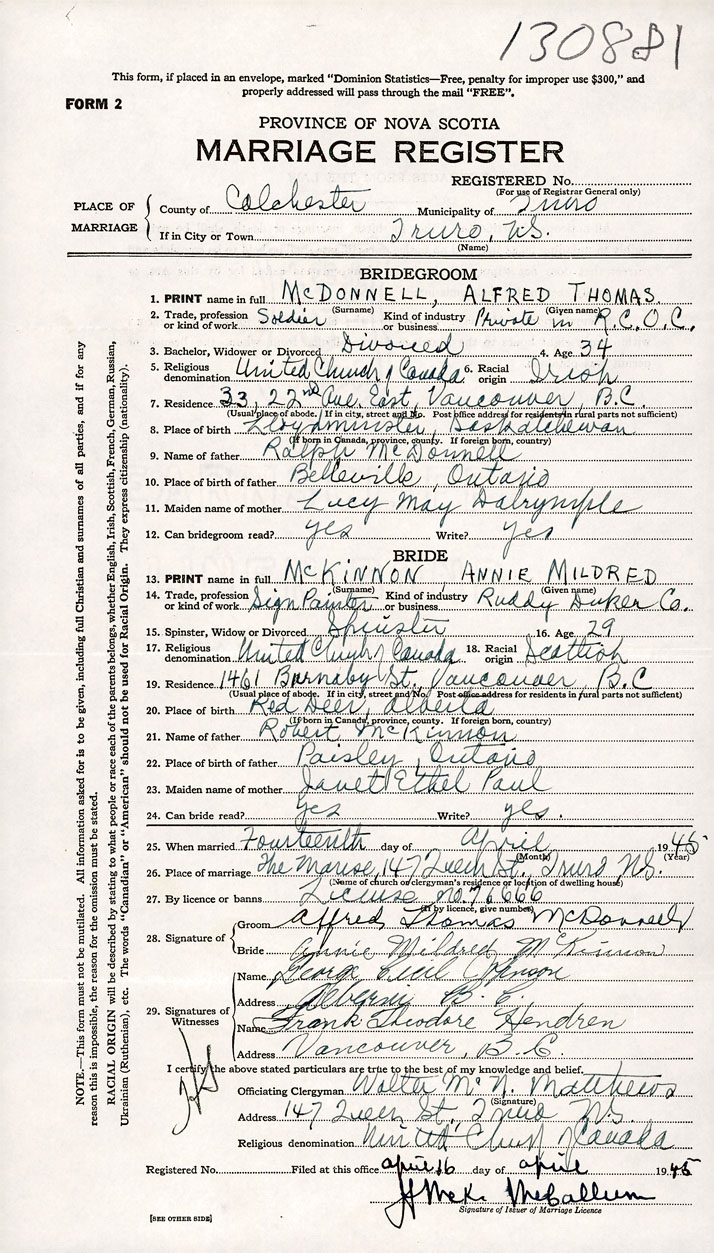 130881
This form, if placed in an envelope, marked "Dominion Statistics—Free, penalty for improper use $300," and
properly addressed will pass through the mail "FREE".
FORM 2
PROVINCE OF NOVA SCOTIA
MARRIAGE REGISTER
REGISTERED No.
(For use of Registrar General only)
PLACE OF MARRIAGE
County of Colchester Municipality of Truro
If in City or Town Truro, N.S.
(Name)
BRIDEGROOM
1. PRINT name in full McDONNELL, ALFRED THOMAS.
(Surname) (Given name)
2. Trade, profession or kind of work Soldier Kind of industry or business Private in R.C.O.C.
3. Bachelor, Widower or Divorced Divorced 4. Age 34
5. Religious denomination United Church of Canada 6. Racial origin Irish
7. Residence 33, 22nd Ave. East, Vancouver, B.C.
(Usual place of abode. If in city, street and No. Post office address for residents in rural parts not sufficient)
8. Place of birth Lloydminster, Saskatchewan
(If born in Canada, province, county. If foreign born, country)
9. Name of father Ralph McDonnell
10. Place of birth of father Belleville, Ontario
11. Maiden name of mother Lucy May Dalrymple
12. Can bridegroom read? yes Write? yes
BRIDE
13. PRINT name in full McKINNON ANNIE MILDRED
(Surname) (Given name)
14. Trade, profession or kind of work Sign Painter Kind of industry or business Ruddy Duker Co.
15. Spinster, Widow or Divorced Spinster 16. Age 29
17. Religious denomination United Church of Canada 18. Racial origin Scottish
19. Residence 1461 Burnaby St., Vancouver, B.C
(Usual place of abode. If in city, street and No. Post office address for residents in rural parts not sufficient)
20. Place of birth Red Deer, Alberta
(If born in Canada, province, county. If foreign born, country)
21. Name of father Robert McKinnon
22. Place of birth of father Paisley, Ontario
23. Maiden name of mother Janet Ethel Paul
24. Can bride read? yes Write? yes.
25. When married Fourteenth day of April 1945
(Month) (Year)
26. Place of marriage The Manse, 147 Queen St., Truro N.S.
(Name of church or clergyman's residence or location of dwelling house)
27. By licence or banns License no. 76666
(If by licence, give number)
28. Signature of
Groom Alfred Thomas McDonnell
Bride Annie Mildred McKinnon
29. Signatures of Witnesses
Name George Cecil
Address Alberni B.C.
Name Frank Theodore Hendren
Address Vancouver, B.C.
I certify the above stated particulars are true to the best of my knowledge and belief.
Officiating Clergyman Walter McN. Matthews
(Signature)
Address 147 Queen St, Truro N.S.
Religious denomination United Church of Canada
Registered No. Filed at this office april 16 day of april 1945
J McK. McCallum
Signature of Issuer of Marriage Licence
[SEE OTHER SIDE]
NOTE.—This form must not be mutilated. All information asked for is to be given, including full Christian and surnames of all parties, and if for any
reason this is impossible, the reason for the omission must be stated.
RACIAL ORIGIN will be described by stating to what people or race each of the parents belongs, whether English, Irish, Scottish, French, German, Russian,
Ukrainian (Ruthenian), etc. The words "Canadian" or "American" should not be used for Racial Origin. They express citizenship (nationality).